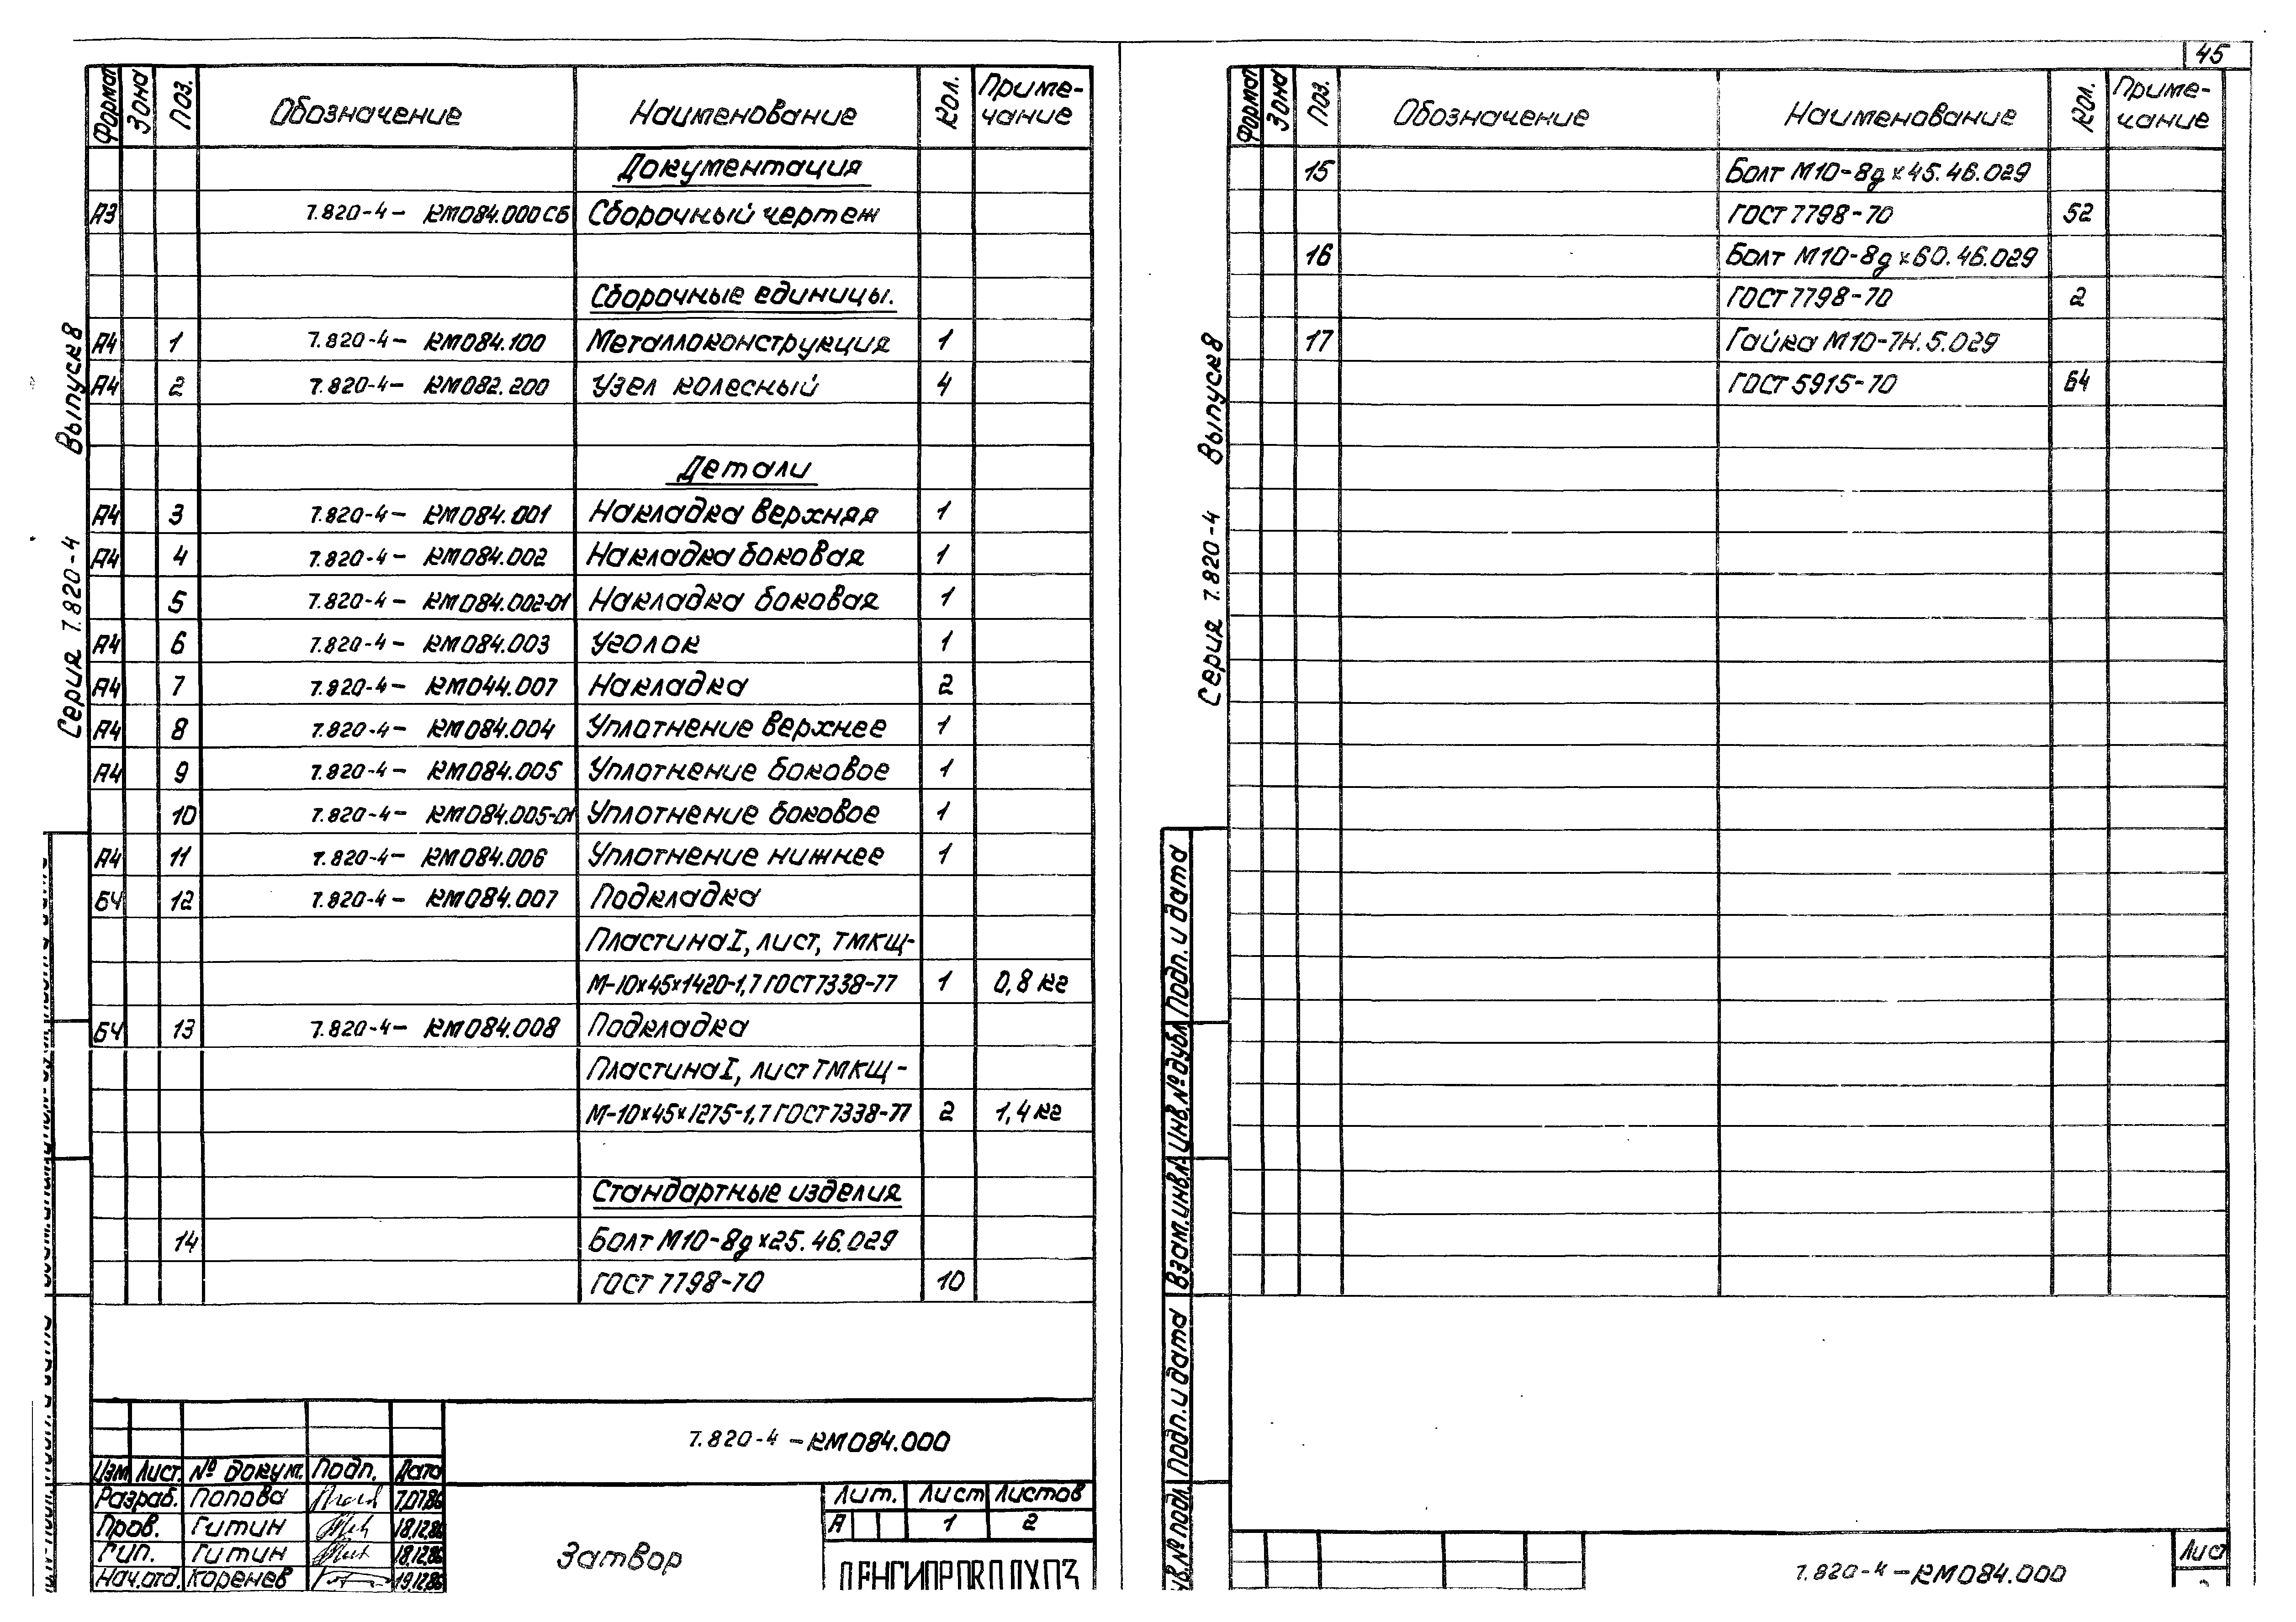 45
Формат Зона Поз. Обозначение Наименование Кол. Приме-
чание
Документация
А3 7.820-4- КМ084.000СБ Сборочный чертеж
Сборочные единицы.
А4 1 7.820-4- КМ084.100 Металлоконструкция 1
А4 2 7.820-4- КМ082.200 Узел колесный 4
Детали
А4 3 7.820-4- КМ084.001 Накладка верхняя 1
А4 4 7.820-4- КМ084.002 Накладка боковая 1
5 7.820-4- КМ084.002-01 Накладка боковая 1
А4 6 7.820-4- КМ084.003 Уголок 1
А4 7 7.820-4- КМ044.007 Накладка 2
А4 8 7.820-4- КМ084.004 Уплотнение верхнее 1
А4 9 7.820-4- КМ084.005 Уплотнение боковое 1
10 7.820-4- КМ084.005-01 Уплотнение боковое 1
А4 11 7.820-4- КМ084.006 Уплотнение нижнее 1
БЧ 12 7.820-4- КМ084.007 Подкладка
Пластина I, лист, ТМКЩ-
М-10х45х1420-1,7 ГОСТ 7338-77 1 0,8 кг
БЧ 13 7.820-4- КМ084.008 Подкладка
Пластина I, лист ТМКЩ-
М-10х45х1275-1,7 ГОСТ 7338-77 2 1,4 кг
Стандартные изделия
14 Болт М10-8gх25.46.029
ГОСТ 7798-70 10
Серия 7.820-4 Выпуск 8
7.820-4-КМ084.000
Изм Лист. № докум. Подп. Дата
Разраб. Попова 7.07.86
Пров. Гитин 18.12.86
Гип. Гитин 18.12.86
Нач.отд. Коренев 19.12.86
Затвор
Лит. Лист Листов
А 1 2
Формат Зона Поз. Обозначение Наименование Кол. Приме-
чание
15 Болт М10-8gх45.46.029
ГОСТ 7798-70 52
16 Болт М10-8gх60.46.029
ГОСТ 7798-70 2
17 Гайка М10-7Н.5.029
ГОСТ 5915-70 64
Серия 7.820-4 Выпуск 8
Подп. и дата
Инв.№ дубл
Взам.инв.№
Подп. и дата
№ подл.
7.820-4-КМ084.000
Лист